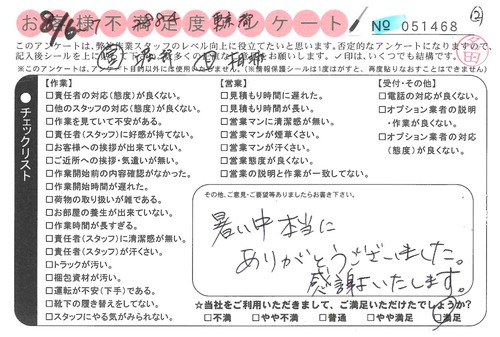 お客様不満足度アンケート
№ 051468
②
このアンケートは、弊社作業スタッフのレベル向上に役立てたいと思います。否定的なアンケートになりますので、
※このアンケートは、アンケート目的以外に使用いたしません。(※情報保護シールは1度はがすと、再度貼りなおすことはできません)
チェックリスト
【作業】
□責任者の対応(態度)が良くない。
□他のスタッフの対応(態度)が良くない。
□作業を見ていて不安がある。
□責任者(スタッフ)に好感が持てない。
□お客様への挨拶が出来ていない。
□ご近所への挨拶・気遣いが無い。
□作業開始前の内容確認がなかった。
□作業開始時間が遅れた。
□荷物の取り扱いが雑である。
□お部屋の養生が出来ていない。
□作業時間が長すぎる。
□責任者(スタッフ)に清潔感が無い。
□責任者(スタッフ)が汗くさい。
□トラックが汚い。
□梱包資材が汚い。
□運転が不安(下手)である。
□靴下の履き替えをしてない。
□スタッフにやる気がみられない。
【営業】
□見積もり時間に遅れた。
□見積もり時間が長い。
□営業マンに清潔感が無い。
□営業マンが煙草くさい。
□営業マンが汗くさい。
□営業態度が良くない。
□営業の説明と作業が一致してない。
【受付・その他】
□電話の対応が良くない。
□オプション業者の説明
・作業が良くない。
□オプション業者の対応
(態度)が良くない。
その他、ご意見・ご要望等ありましたらお書き下さい。
暑い中本当に
ありがとうございました。
感謝いたします。
☆当社をご利用いただきまして、ご満足いただけたでしょうか?
□不満 □やや不満 □普通 □やや満足 □満足